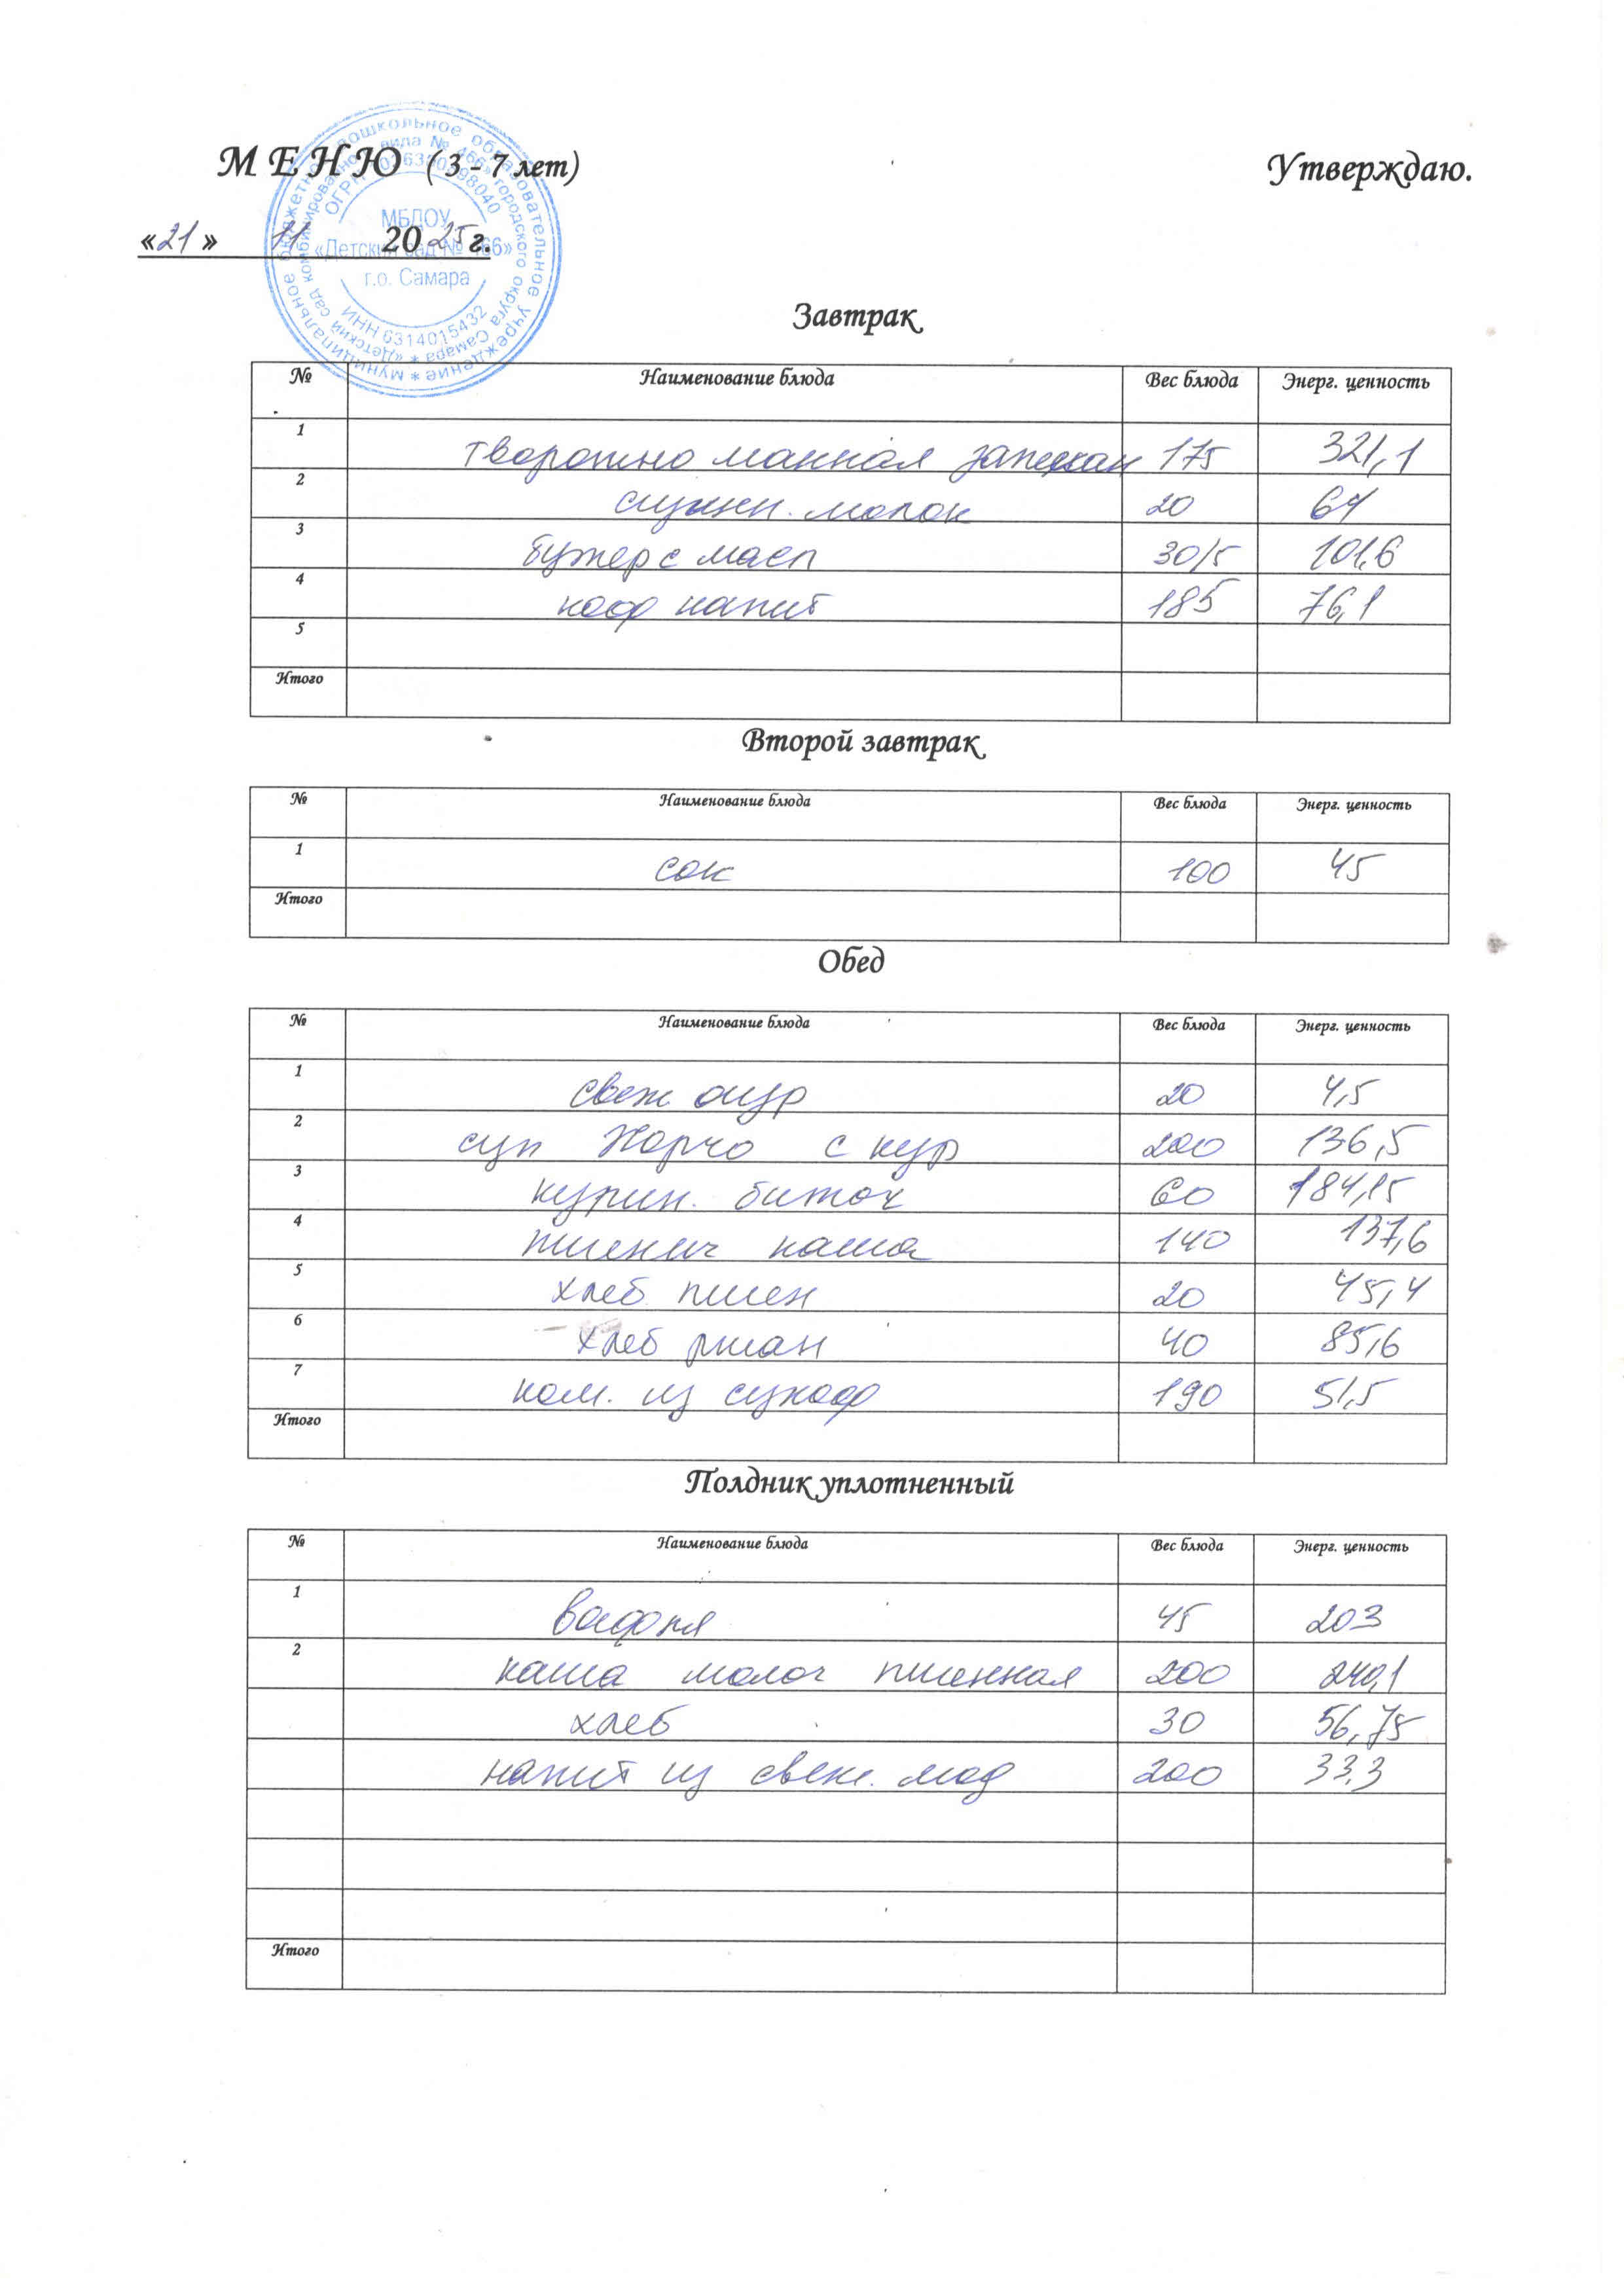 М Е Н Ю ( 3 - 7 лет)
Утверждаю.
«21» 11 2025г.
муниципальное бюджетное дошкольное образовательное учреждение *
«Детский сад комбинированного вида № 466» городского округа Самара *
МБДОУ
«Детский сад № 466»
г.о. Самара
ИНН 6314015432
Завтрак
№ Наименование блюда Вес блюда Энерг. ценность
1 творожно манная запекан 175 321,1
2 сгущен. молок 20 64
3 бутер с масл 30/5 101,6
4 коф напит 185 76,1
5
Итого
Второй завтрак
№ Наименование блюда Вес блюда Энерг. ценность
1 сок 100 45
Итого
Обед
№ Наименование блюда Вес блюда Энерг. ценность
1 свеж огур 20 4,5
2 суп Харчо с кур 200 136,5
3 курин. биточ 60 184,15
4 пшенич каша 140 137,6
5 хлеб пшен 20 45,4
6 хлеб ржан 40 85,6
7 ком. из сухоф 190 51,5
Итого
Полдник уплотненный
№ Наименование блюда Вес блюда Энерг. ценность
1 вафля 45 203
2 каша молоч пшенная 200 240,1
хлеб 30 56,75
напит из свеж. 200 33,3
Итого